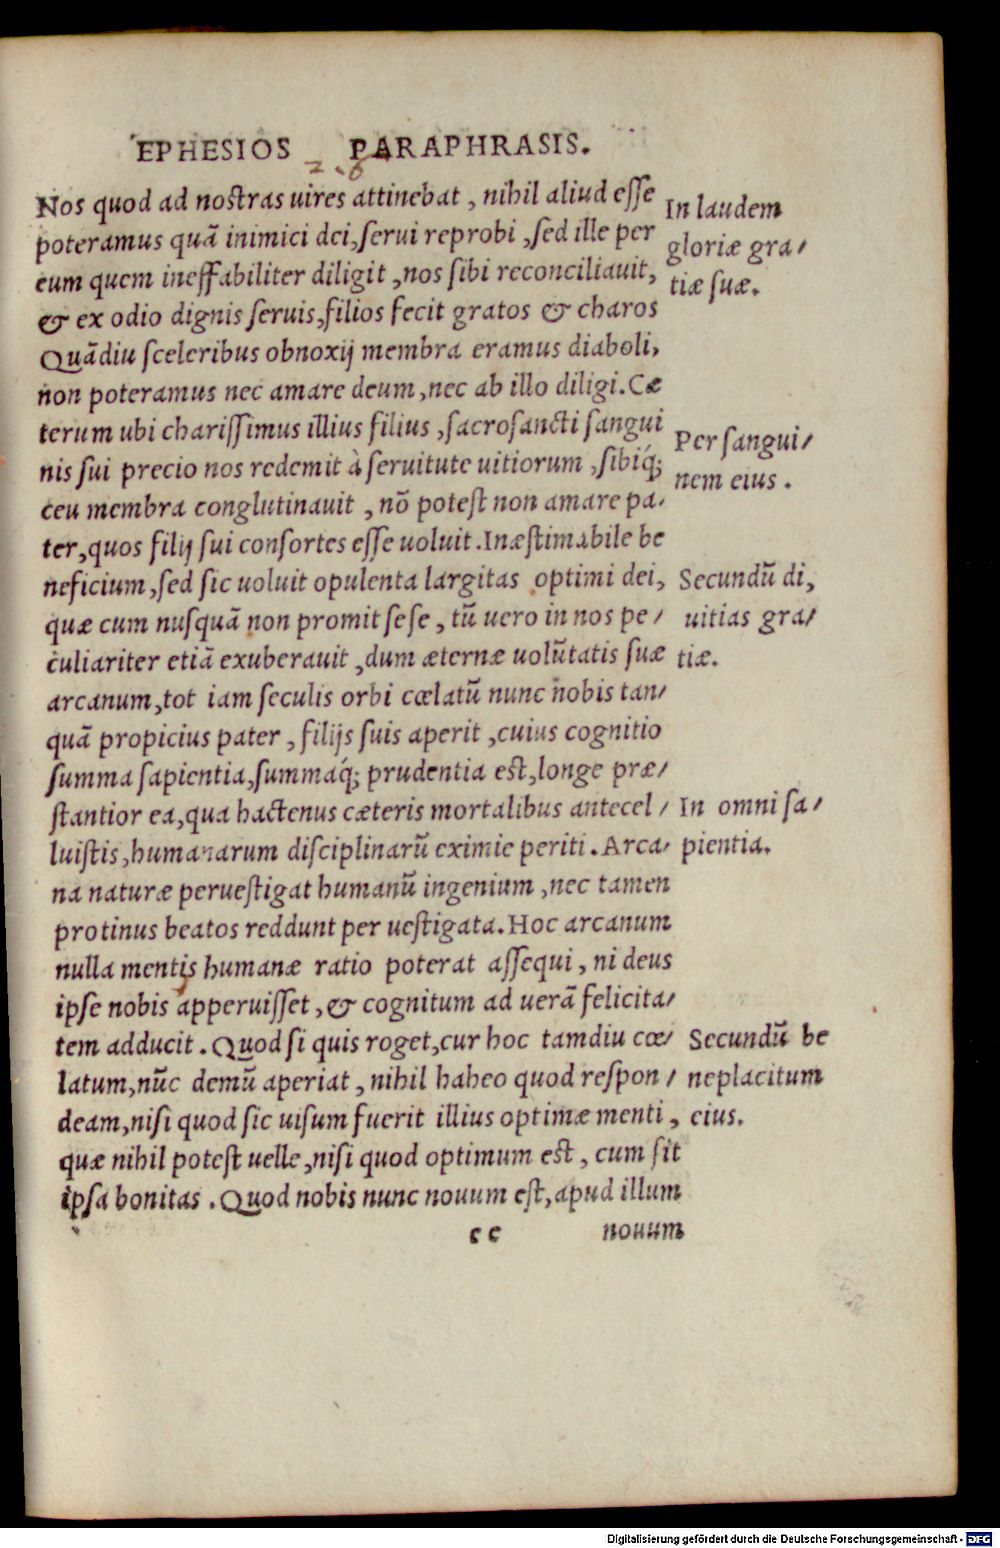 EPHESIOS PARAPHRASIS.
2.6
Nos quod ad nostras uires attinebat, nihil aliud esse
poteramus quā inimici dei, serui reprobi, sed ille per
eum quem ineffabiliter diligit, nos sibi reconciliauit,
& ex odio dignis seruis, filios fecit gratos & charos
Quādiu sceleribus obnoxij membra eramus diaboli,
non poteramus nec amare deum, nec ab illo diligi. Cæ
terum ubi charissimus illius filius, sacrosancti sangui
nis sui precio nos redemit à seruitute uitiorum, sibiq́;
ceu membra conglutinauit, nō potest non amare pa-
ter, quos filij sui consortes esse uoluit. Inæstimabile be
neficium, sed sic uoluit opulenta largitas optimi dei,
quæ cum nusquā non promit sese, tū uero in nos pe/
culiariter etiā exuberauit, dum æternæ uolūtatis suæ
arcanum, tot iam seculis orbi cœlatū nunc nobis tan/
quā propicius pater, filijs suis aperit, cuius cognitio
summa sapientia, summaq́; prudentia est, longe præ/
stantior ea, qua hactenus cæteris mortalibus antecel/
luistis, humanarum disciplinarū eximie periti. Arca/
na naturæ peruestigat humanū ingenium, nec tamen
protinus beatos reddunt per uestigata. Hoc arcanum
nulla mentis humanæ ratio poterat assequi, ni deus
ipse nobis apperuisset, & cognitum ad uerā felicita/
tem adducit. Quod si quis roget, cur hoc tamdiu cœ/
latum, nūc demū aperiat, nihil habeo quod respon/
deam, nisi quod sic uisum fuerit illius optimæ menti,
quæ nihil potest uelle, nisi quod optimum est, cum sit
ipsa bonitas. Quod nobis nunc nouum est, apud illum
cc nouum
In laudem
gloriæ gra/
tiæ suæ.
Per sangui/
nem eius.
Secundū di,
uitias gra/
tiæ.
In omni sa/
pientia.
Secundū be
neplacitum
eius.
Digitalisierung gefördert durch die Deutsche Forschungsgemeinschaft - DFG